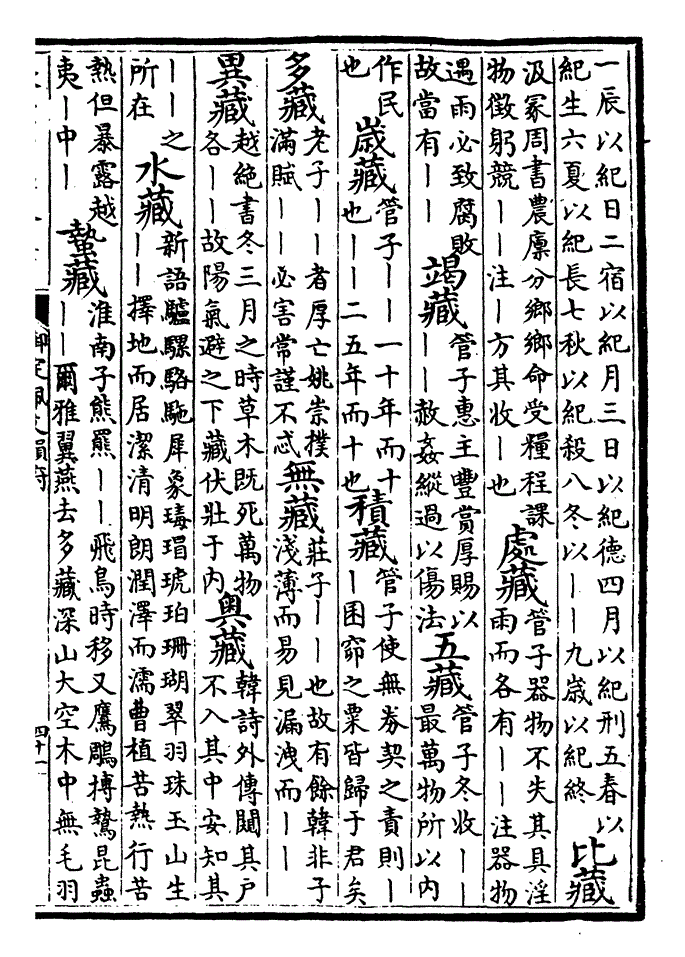 一辰以紀日二宿以紀月三日以紀德四月以紀刑五春以
紀生六夏以紀長七秋以紀殺八冬以丨丨九歲以紀終
比藏
汲冢周書農廩分鄉鄉命受糧程課
物徵躬競丨丨注丨方其收丨也
處藏
管子器物不失其具淫
雨而各有丨丨注器物
遇雨必致腐敗
故當有丨丨
竭藏
管子惠主豐賞厚賜以
丨丨赦姦縱過以傷法
五藏
管子冬收丨丨
最萬物所以內
作民
也
歲藏
管子丨丨一十年而十
也丨丨二五年而十也
積藏
管子使無券契之責則丨
丨囷窌之粟皆歸于君矣
多藏
老子丨丨者厚亡姚崇撲
滿賦丨丨必害常謹不忒
無藏
莊子丨丨也故有餘韓非子
淺薄而易見漏洩而丨丨
異藏
越絶書冬三月之時草木旣死萬物
各丨丨故陽氣避之下藏伏壯于內
奥藏
韓詩外傳闚其戶
不入其中安知其
丨丨之
所在
水藏
新語驢騾駱駞犀象瑇瑁琥珀珊瑚翠羽珠玉山生
丨丨擇地而居潔清明朗潤澤而濡曹植苦熱行苦
熱但暴露越
夷丨中丨
蟄藏
淮南子熊羆丨丨飛鳥時移又鷹鵰搏鷙昆蟲
丨丨爾雅翼燕去多藏深山大空木中無毛羽
御定佩文韻府
四十一